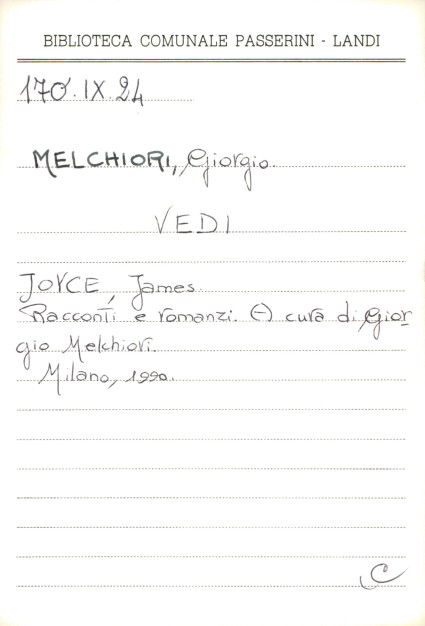 BIBLIOTECA COMUNALE PASSERINI - LANDI
170.IX.24
MELCHIORI, Giorgio.
VEDI
JOYCE, James.
Racconti e romanzi. (-) cura di Gior-
gio Melchiori.
Milano, 1990.
C